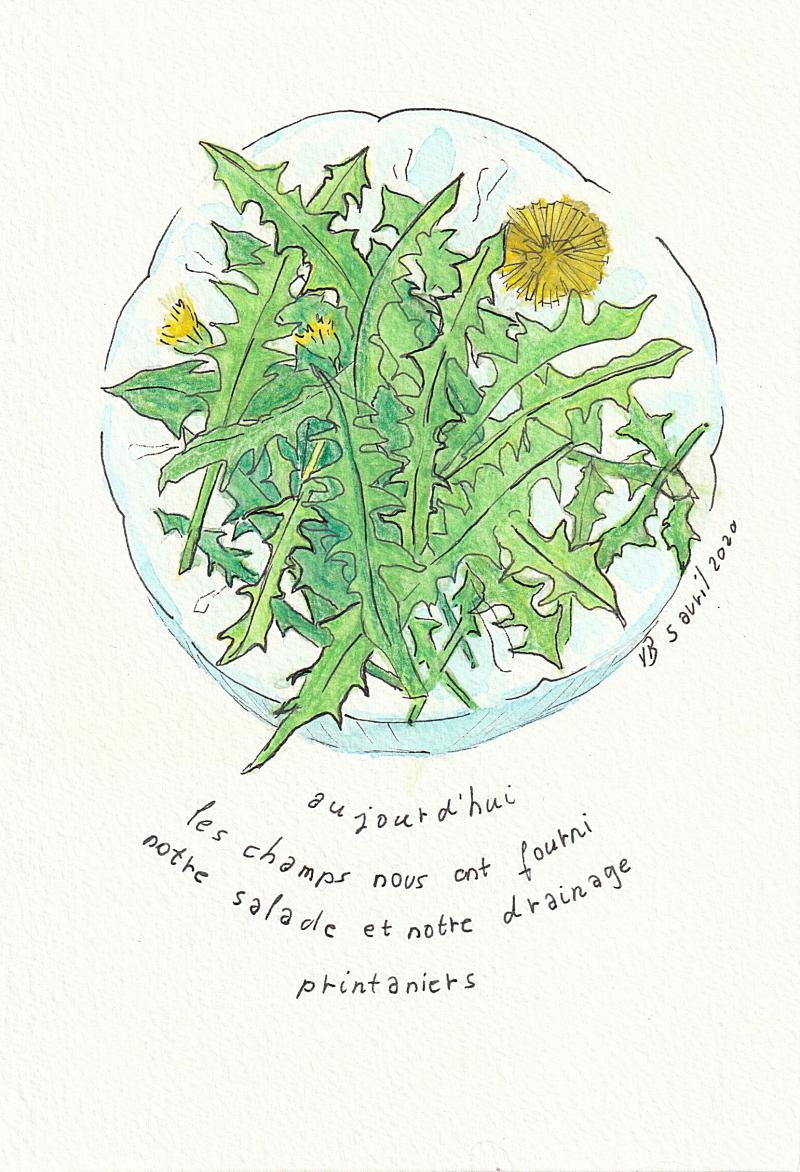 VB 5 avril 2020
aujourd'hui
les champs nous ont fourni
notre salade et notre drainage
printaniers